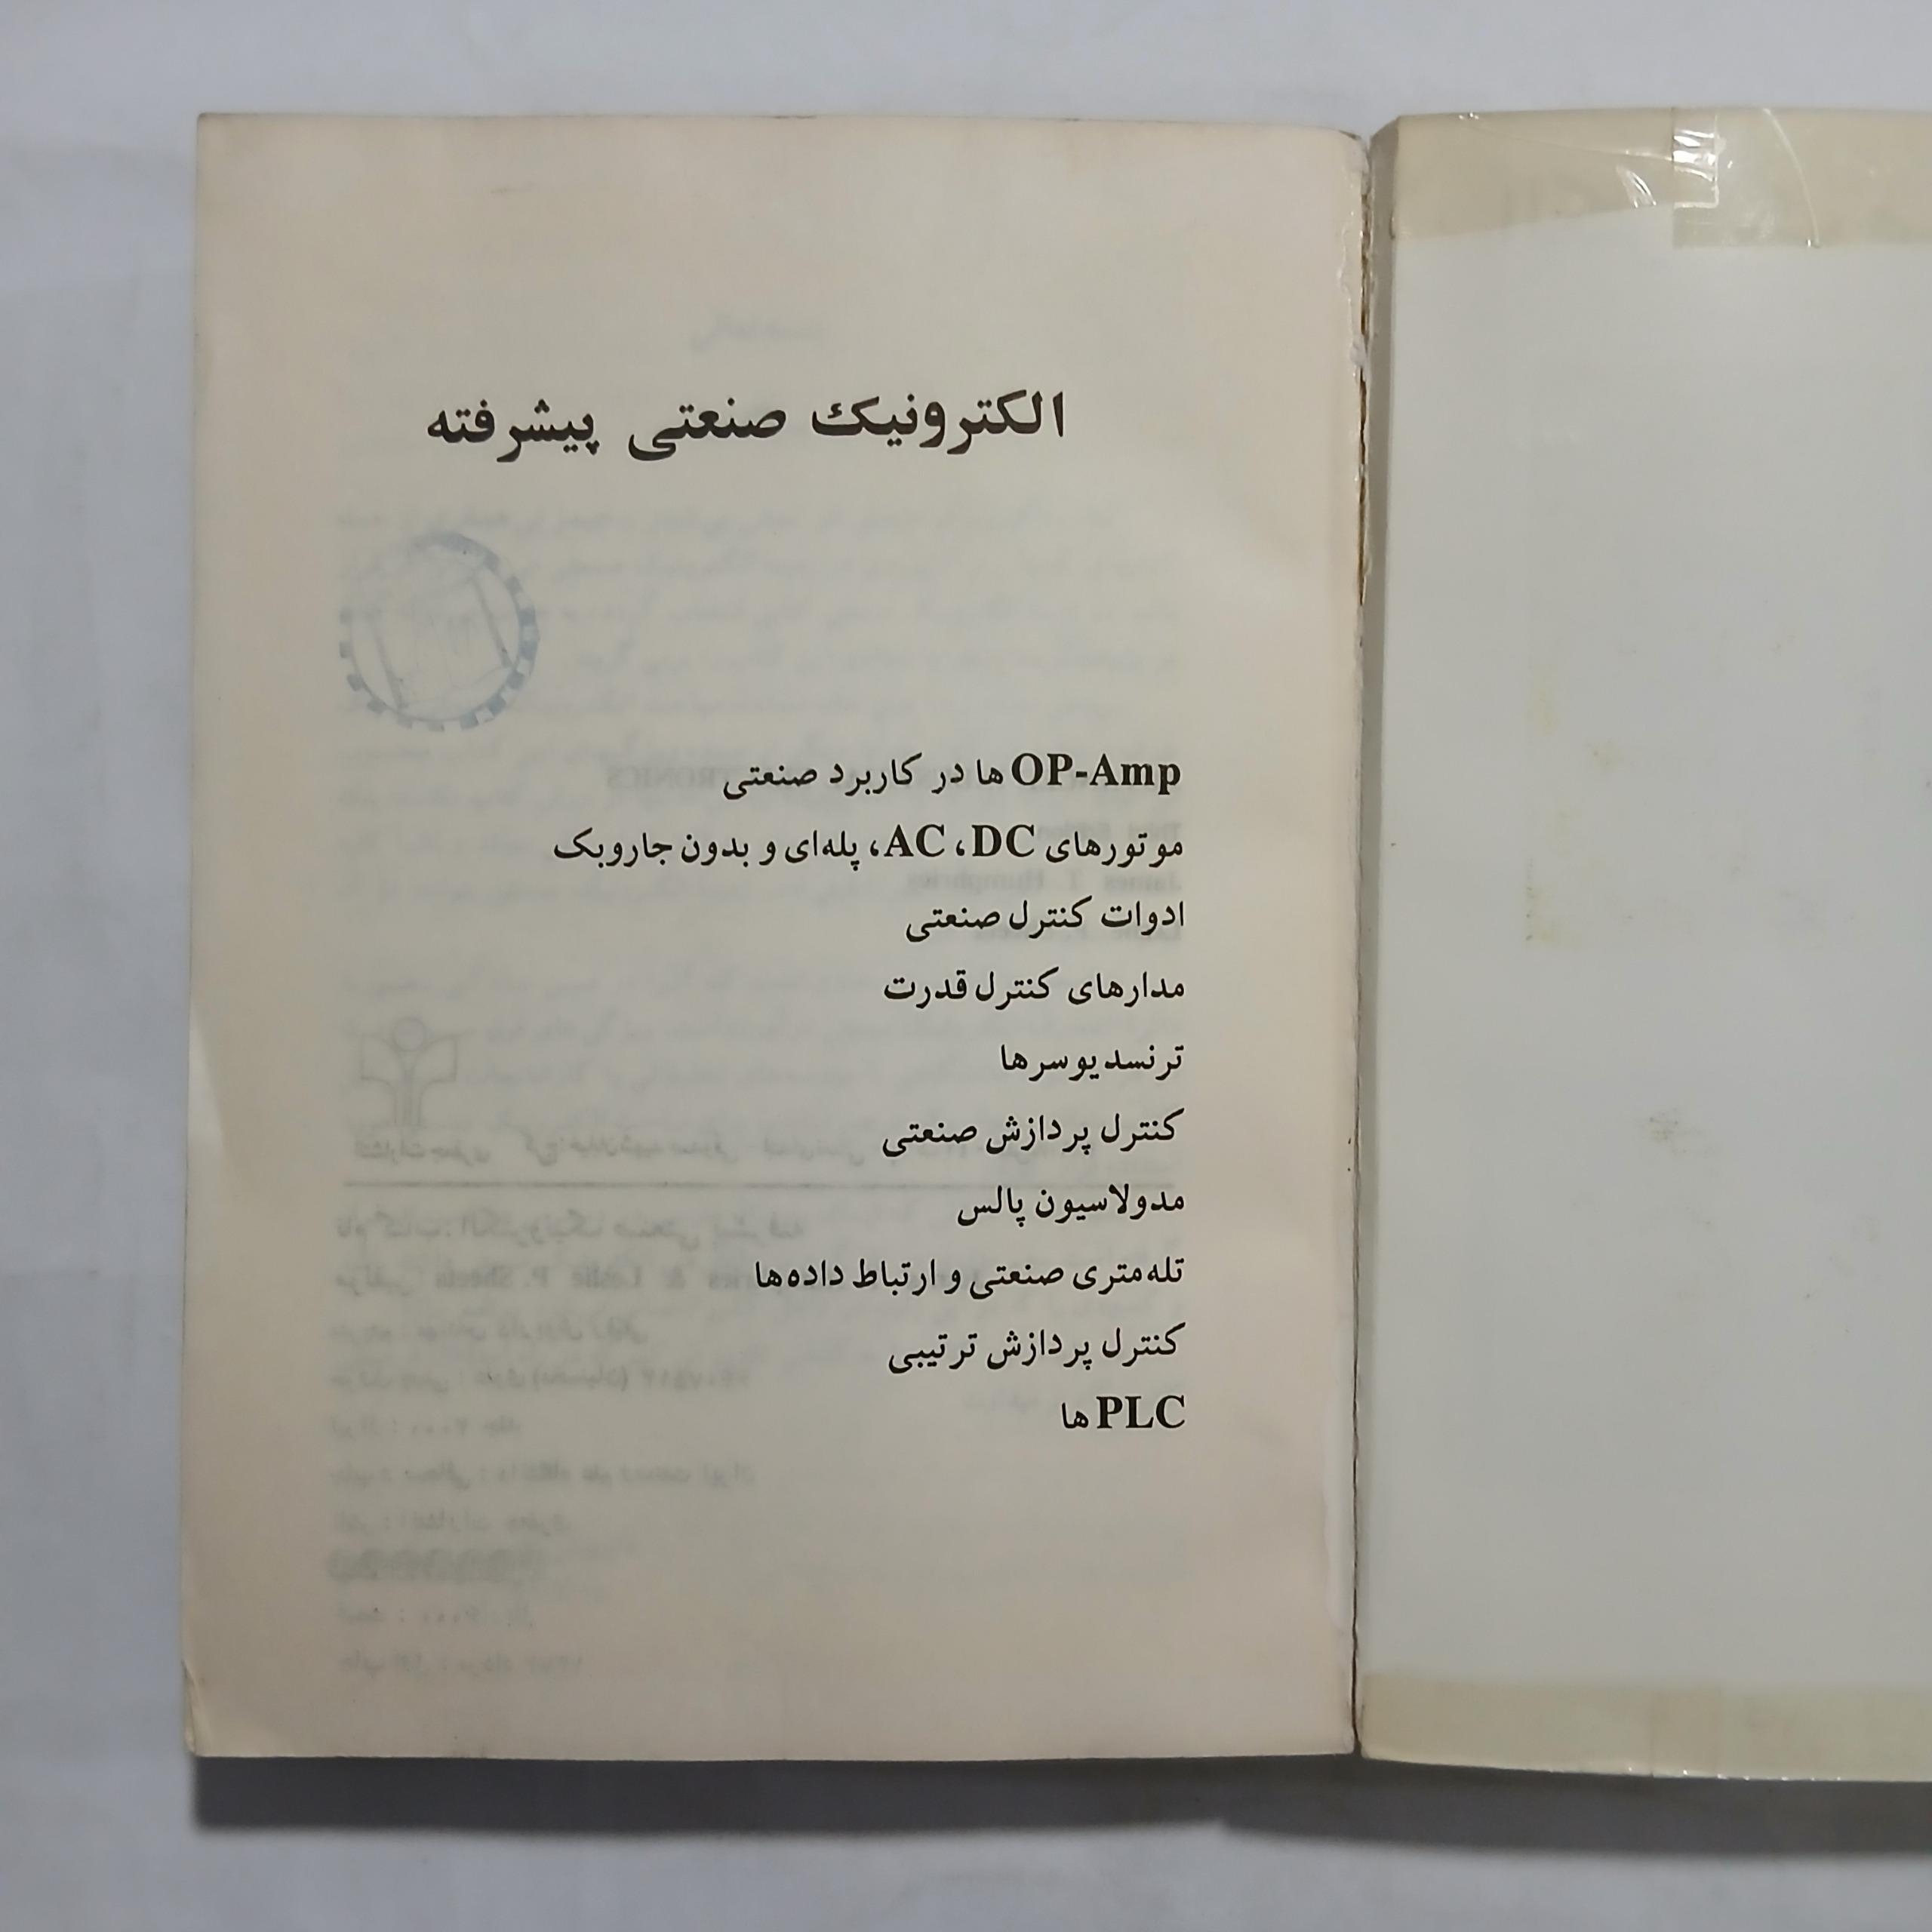 الکترونیک صنعتی پیشرفته
OP-Amp ها در کاربرد صنعتی
موتورهای AC ،DC، پله‌ای و بدون جاروبک
ادوات کنترل صنعتی
مدارهای کنترل قدرت
ترنسدیوسرها
کنترل پردازش صنعتی
مدولاسیون پالس
تله‌متری صنعتی و ارتباط داده‌ها
کنترل پردازش ترتیبی
PLC ها